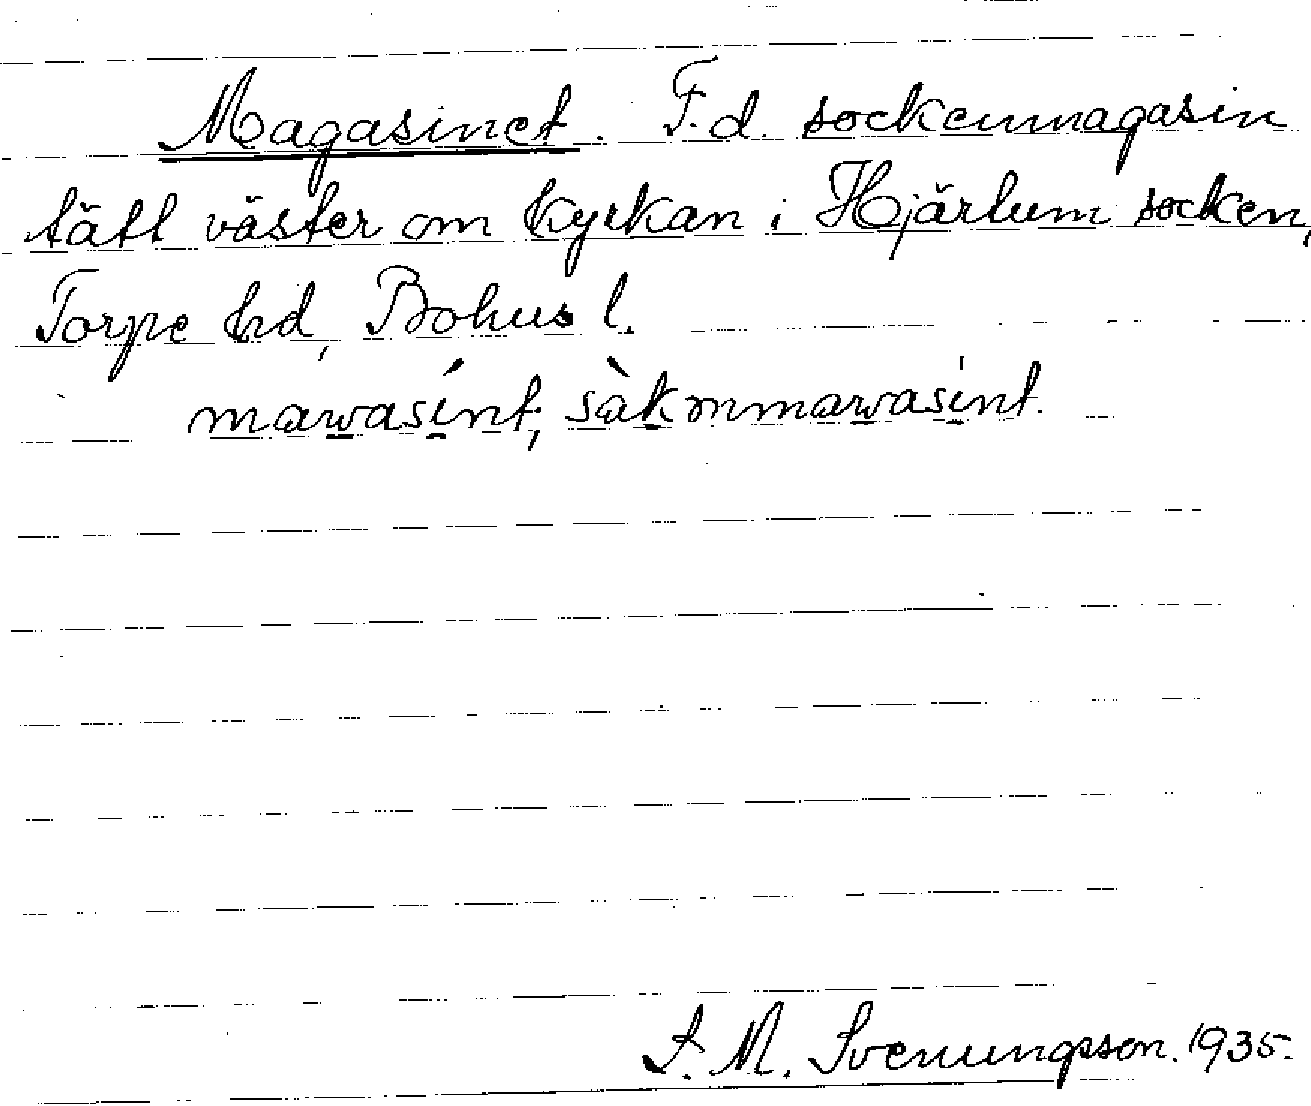 Magasinet. F.d. sockenmagasin
tätt väster om kyrkan i Hjärtum socken,
Torpe hd, Bohus l.
mawasínt, sàkmmawasint.
S. M. Svenungsson. 1935.